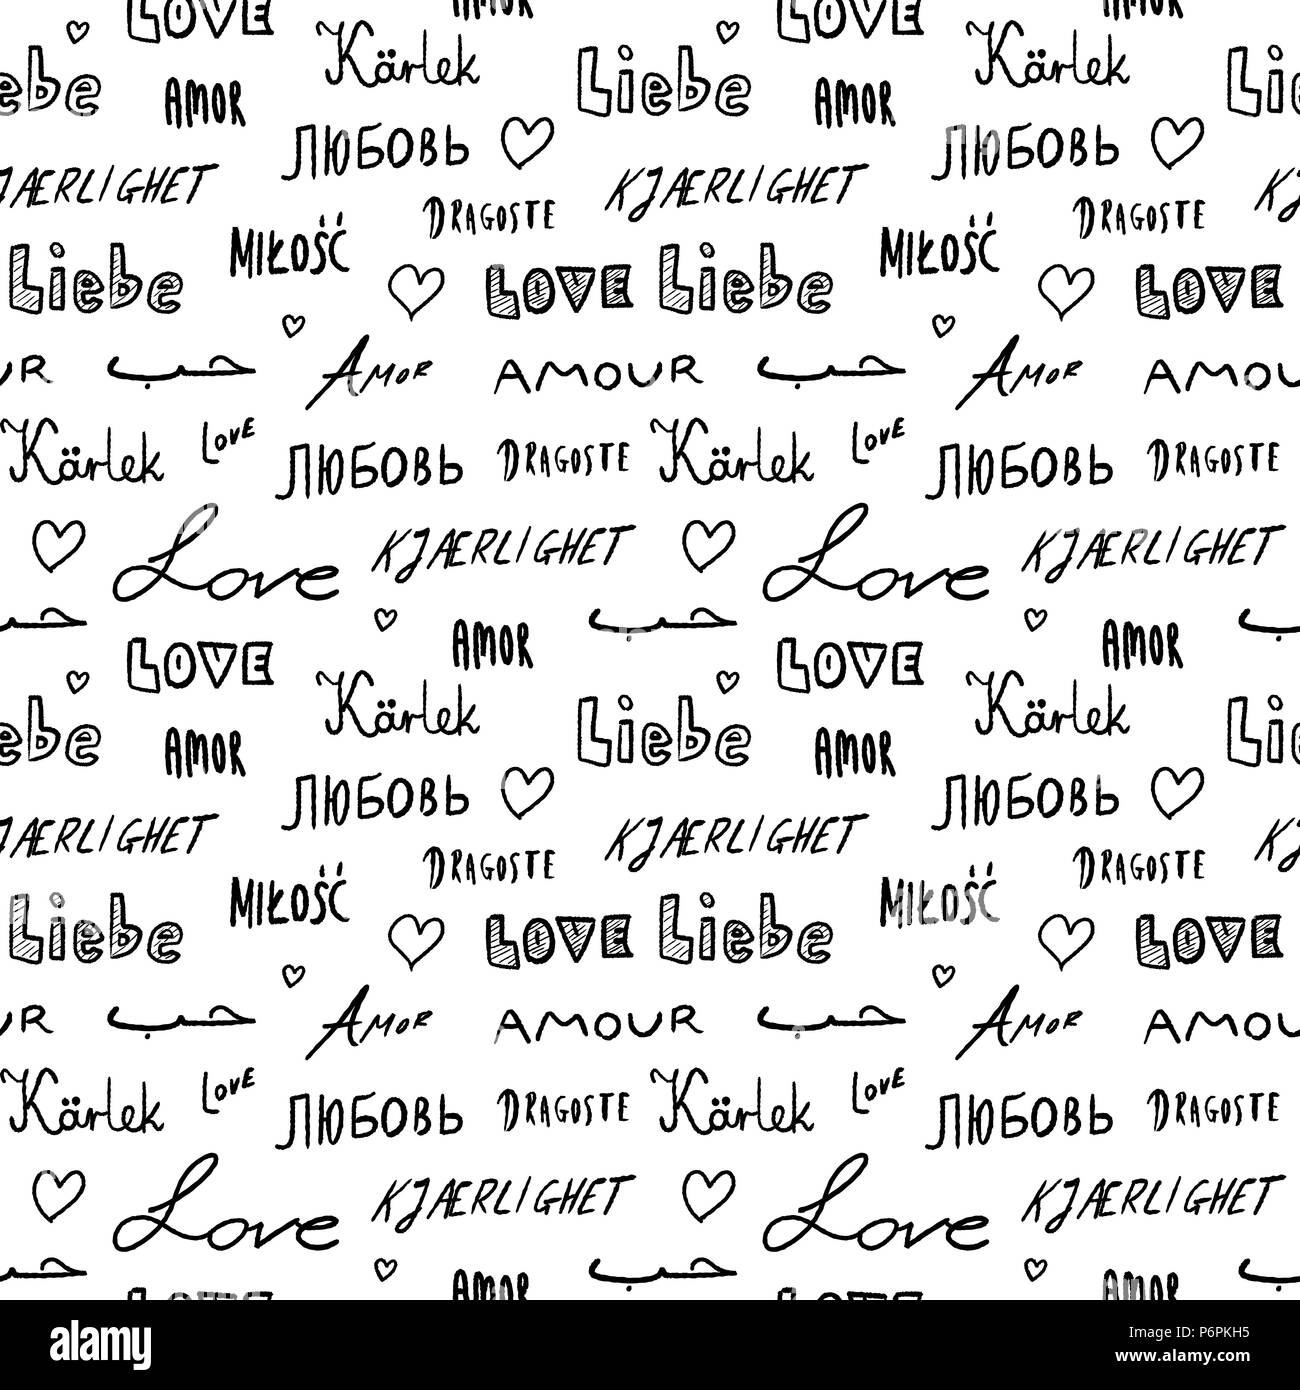 LOVE AMOR LOVE AMOR
Kärlek Kärlek
ebe AMOR Liebe AMOR Li
ЛЮБОВЬ ЛЮБОВЬ
JÆRLIGHET KJÆRLIGHET KJ
DRAGOSTE DRAGOSTE
MIŁOŚĆ MIŁOŚĆ
Liebe LOVE Liebe LOVE
UR حب AMOR AMOUR حب AMOR AMOU
Kärlek LOVE ЛЮБОВЬ DRAGOSTE Kärlek LOVE ЛЮБОВЬ DRAGOSTE
Love KJÆRLIGHET Love KJÆRLIGHET
حب حب حب
LOVE AMOR LOVE AMOR
Kärlek Kärlek
ebe AMOR Liebe AMOR Li
ЛЮБОВЬ ЛЮБОВЬ
JÆRLIGHET KJÆRLIGHET KJ
DRAGOSTE DRAGOSTE
MIŁOŚĆ MIŁOŚĆ
Liebe LOVE Liebe LOVE
UR حب AMOR AMOUR حب AMOR AMOU
Kärlek LOVE ЛЮБОВЬ DRAGOSTE Kärlek LOVE ЛЮБОВЬ DRAGOSTE
Love KJÆRLIGHET Love KJÆRLIGHET
حب حب حب
LOVE AMOR LOVE AMOR
alamy stock photo
P6PKH5
www.alamy.com